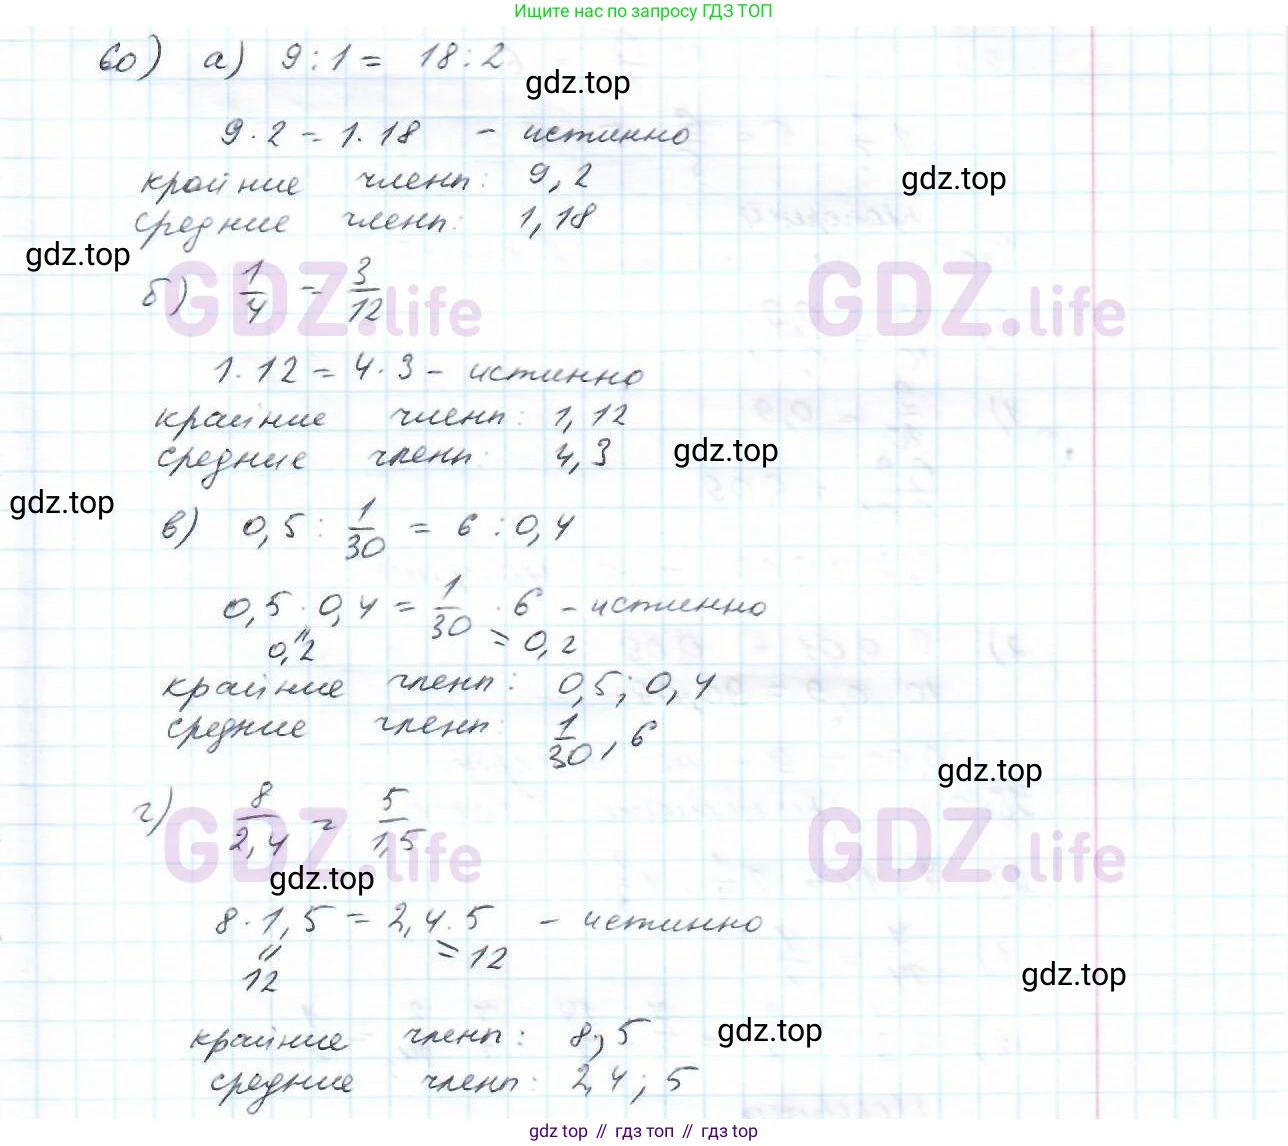 Ищите нас по запросу ГДЗ ТОП
60) а) 9 : 1 = 18 : 2
gdz.top
9 · 2 = 1 · 18 - истинно
крайние члены: 9, 2
gdz.top
средние члены: 1, 18
gdz.top
б) 1/4 = 3/12
GDZ.life
GDZ.life
1 · 12 = 4 · 3 - истинно
крайние члены: 1, 12
средние члены: 4, 3
gdz.top
gdz.top
в) 0,5 : 1/30 = 6 : 0,4
0,5 · 0,4 = 1/30 · 6 - истинно
0,2 = 0,2
крайние члены: 0,5; 0,4
средние члены: 1/30, 6
gdz.top
г) 8/2,4 = 5/1,5
GDZ.life
GDZ.life
gdz.top
8 · 1,5 = 2,4 · 5 - истинно
12 = 12
gdz.top
крайние члены: 8; 5
gdz.top
средние члены: 2,4; 5
gdz top // гдз топ // gdz top